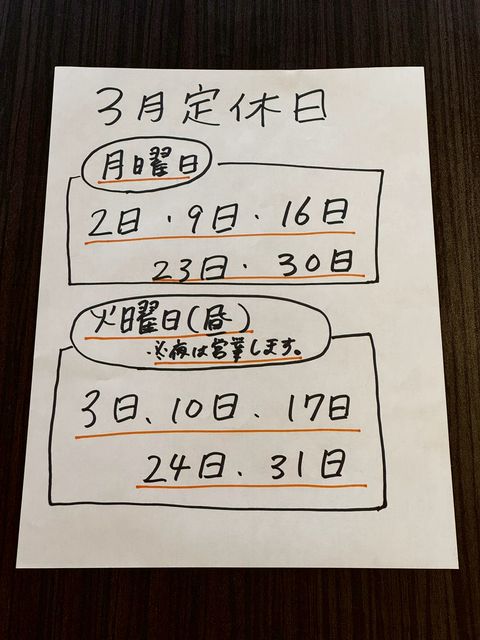 3月定休日
月曜日
2日・9日・16日
23日・30日
火曜日(昼)
※夜は営業します。
3日、10日、17日
24日、31日